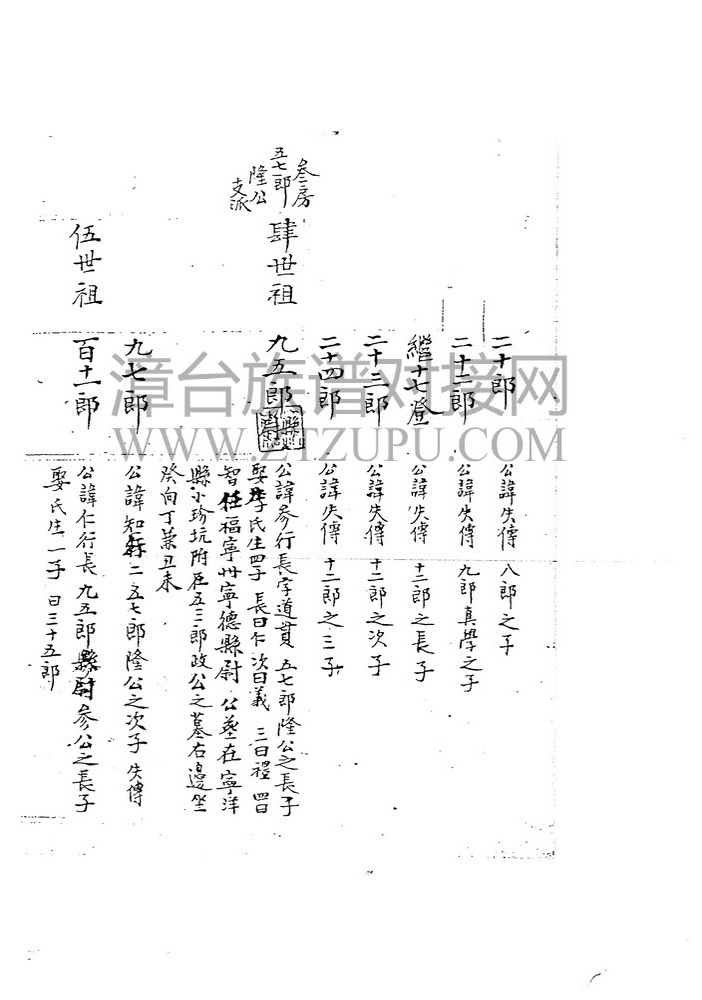 二十郎 公諱失傳 八郎之子
二十二郎 公諱失傳 九郎真學之子
繼十七登 公諱失傳 十二郎之長子
二十三郎 公諱失傳 十二郎之次子
二十四郎 公諱失傳 十二郎之三子
叁房
五七郎
隆公
支派
肆世祖
九五郎 縣尉 公諱參行長字道貫 五七郎隆公之長子
娶李氏生四子 長曰仁 次曰義 三曰禮 四曰
智 任福寧州寧德縣尉 公墓在寧洋
縣小珍坑附在五三郎政公之墓右邊坐
癸向丁兼丑未
九七郎 公諱知行二 五七郎隆公之次子 失傳
伍世祖
百十一郎 公諱仁行長 九五郎縣尉參公之長子
娶 氏生一子 曰三十五郎
漳台族谱对接网
WWW.ZTZUPU.COM